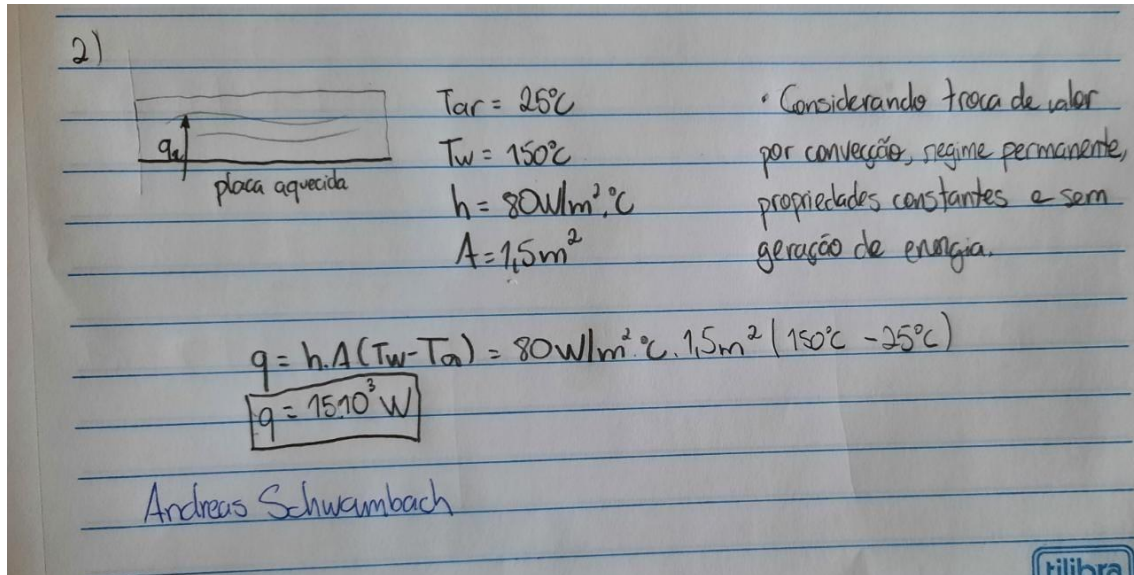 2)
qx
placa aquecida
Tar = 25°C
Tw = 150°C
h = 80W/m².°C
A = 1,5m²
• Considerando troca de calor
por convecção, regime permanente,
propriedades constantes e sem
geração de energia.
q = h.A(Tw-Ta) = 80W/m².°C.1,5m²(150°C - 25°C)
q = 15.10³ W
Andreas Schwambach
tilibra